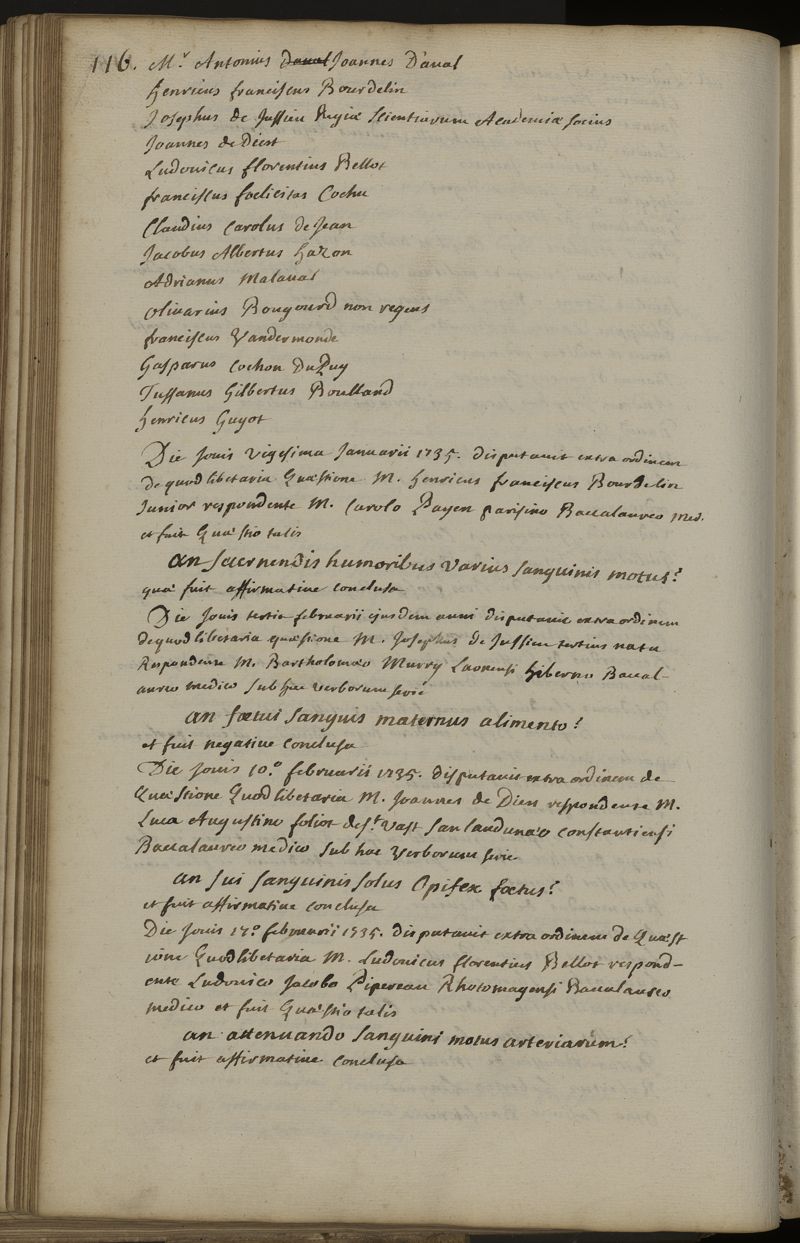 116. Mr. Antonius Daval Joannes D'aval
henricus franciscus Bourdelin
Josephus de Jussieu Regiæ Scientiarum Academiæ socius
Joannes de Diest
Ludovicus florentius Bellot
franciscus foelicitas Cochu
Claudius Carolus de Jean
Jacobus Albertus hazon
Adrianus Malaval
olivarius Bougourd non regens
franciscus Vandermonde
Gasparus cochon DuPuy
Tussanus Gilbertus Boulland
henricus Guyot
Die Jovis vigesima Januarii 1735. disputavit extra ordinem
de quodlibetaria Quæstione M. henricus franciscus Bourdelin
Junior respondente M. Carolo Payen parisino Baccalaureo Med.
et fuit Quæstio talis
an secernendis humoribus varius sanguinis motus?
quæ fuit affirmative conclusa
Die Jovis tertia februarii ejusdem anni disputavit extra ordinem
de quodlibetaria quæstione M. Josephus de Jussieu tertius natu
Respondente M. Bartholomæo Murry Laonensi hiberno Baccal-
aureo medico sub hac verborum serie
an foetui sanguis maternus alimento?
et fuit negative conclusa
Die Jovis 10.º februarii 1735. disputavit extra ordinem de
Quæstione Quodlibetaria M. Joannes de Dies respondente M.
Luca Augustino foliot de St. Vast sanlaudunæo constantiensi
Baccalaureo medico sub hac verborum serie
an sui sanguinis solus Opifex foetus?
et fuit affirmative conclusa
Die Jovis 17.º februarii 1735. disputavit extra ordinem de Quæst
ione Quodlibetaria M. Ludovicus florentius Bellot respond-
ente Ludovico Jacobo Pipereau Rhotomagensi Baccalaureo
medico et fuit Quæstio talis
an attenuando sanguini motus arteriarum?
et fuit affirmative conclusa